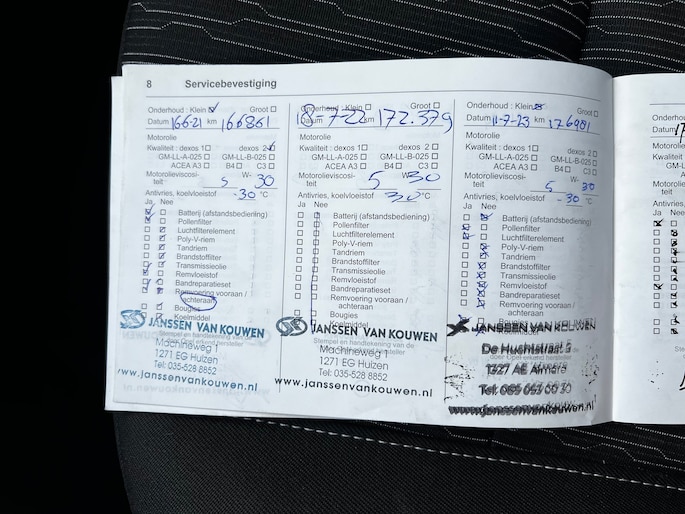 8 Servicebevestiging
Onderhoud : Klein Groot
Datum 16-6-21 km 166861
Motorolie
Kwaliteit : dexos 1 dexos 2
GM-LL-A-025 GM-LL-B-025
ACEA A3 B4 C3
Motorolieviscosi- W-
teit 5 30
Antivries, koelvloeistof -30 °C
Ja Nee
Batterij (afstandsbediening)
Pollenfilter
Luchtfilterelement
Poly-V-riem
Tandriem
Brandstoffilter
Transmissieolie
Remvloeistof
Bandreparatieset
Remvoering vooraan /
achteraan
Bougies
Koelmiddel
JANSSEN VAN KOUWEN
Stempel en handtekening van de
Machineweg 1
1271 EG Huizen
Tel: 035-528 8852
www.janssenvankouwen.nl
Onderhoud : Klein Groot
Datum 18-7-22 km 172.379
Motorolie
Kwaliteit : dexos 1 dexos 2
GM-LL-A-025 GM-LL-B-025
ACEA A3 B4 C3
Motorolieviscosi- W-
teit 5 30
Antivries, koelvloeistof -30 °C
Ja Nee
Batterij (afstandsbediening)
Pollenfilter
Luchtfilterelement
Poly-V-riem
Tandriem
Brandstoffilter
Transmissieolie
Remvloeistof
Bandreparatieset
Remvoering vooraan /
achteraan
Bougies
Koelmiddel
JANSSEN VAN KOUWEN
Stempel en handtekening van de
Machineweg 1
1271 EG Huizen
Tel: 035-528 8852
www.janssenvankouwen.nl
Onderhoud : Klein Groot
Datum 11-7-23 km 176981
Motorolie
Kwaliteit : dexos 1 dexos 2
GM-LL-A-025 GM-LL-B-025
ACEA A3 B4 C3
Motorolieviscosi- W-
teit 5 30
Antivries, koelvloeistof -30 °C
Ja Nee
Batterij (afstandsbediening)
Pollenfilter
Luchtfilterelement
Poly-V-riem
Tandriem
Brandstoffilter
Transmissieolie
Remvloeistof
Bandreparatieset
Remvoering vooraan /
achteraan
Bougies
JANSSEN VAN KOUWEN
De Huchtstraat
1327 AE Almere
Tel:
www.janssenvankouwen.nl
Onderho
Datum
Motorolie
Kwaliteit
GM-
Motorolie
teit
Antivries
Ja Nee